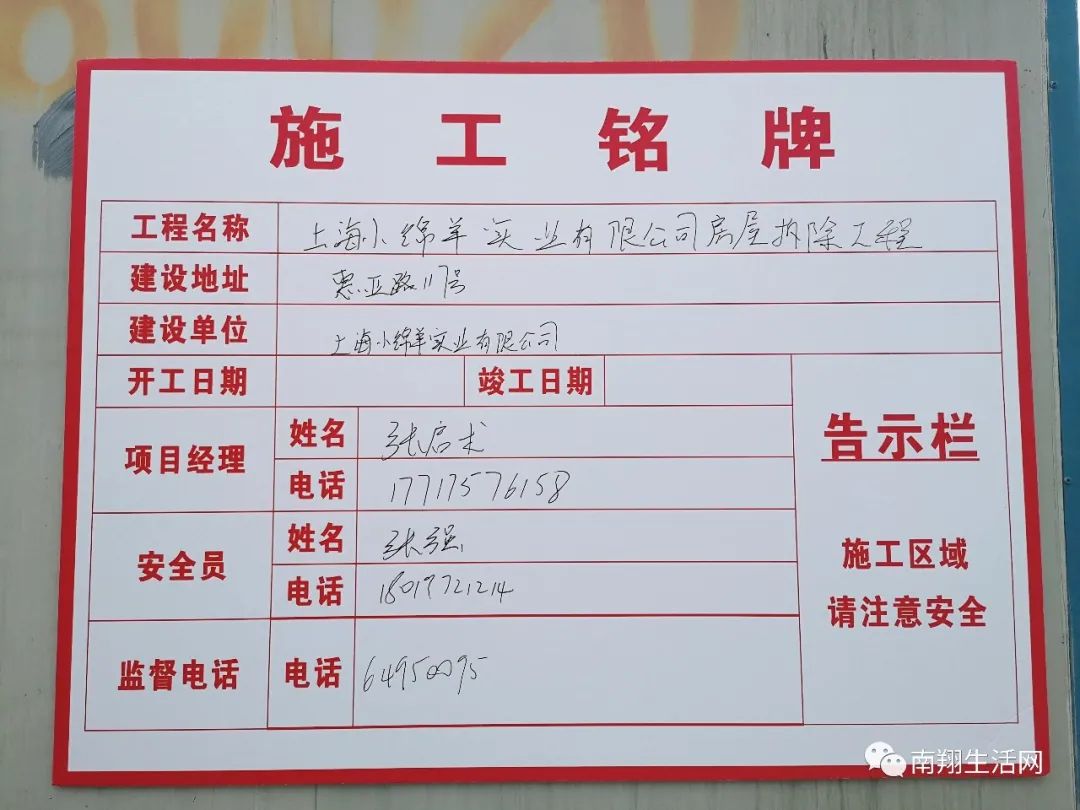 施工铭牌
工程名称 上海小绵羊实业有限公司房屋拆除工程
建设地址 惠亚路117号
建设单位 上海小绵羊实业有限公司
开工日期 竣工日期
项目经理 姓名 张启术
电话 17717576158
安全员 姓名 张强
电话 18019721214
监督电话 电话 64950095
告示栏
施工区域
请注意安全
南翔生活网